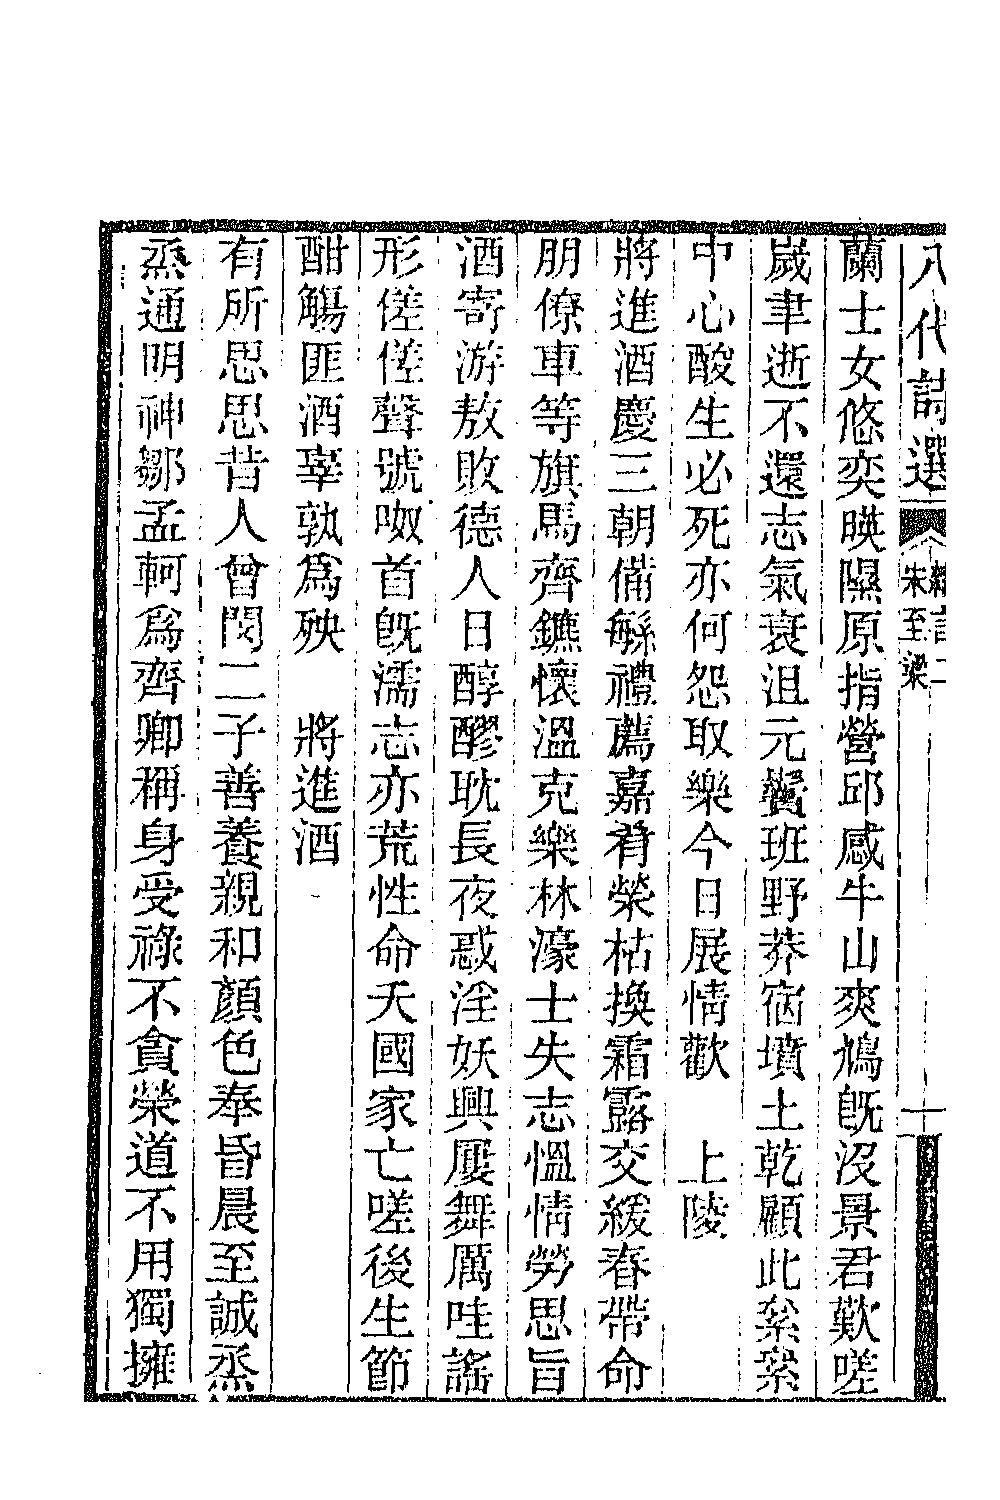 八代詩選 雜言二 宋至梁 十
蘭士女悠奕暎隰原指營邱感牛山爽鳩旣沒景君歎嗟
歲聿逝不還志氣衰沮元鬢班野莽宿墳土乾顧此纍纍
中心酸生必死亦何怨取樂今日展情歡　上陵
將進酒慶三朝備繇禮薦嘉肴榮枯換霜露交緩春帶命
朋僚車等旗馬齊鑣懷溫克樂林濠士失志慍情勞思旨
酒寄游敖敗德人日醇醪耽長夜惑淫妖興屢舞厲哇謠
形傞傞聲號呶首旣濡志亦荒性命夭國家亡嗟後生節
酣觴匪酒辜孰爲殃　將進酒
有所思思昔人曾閔二子善養親和顏色奉昏晨至誠烝
烝通明神鄒孟軻爲齊卿稱身受祿不貪榮道不用獨擁